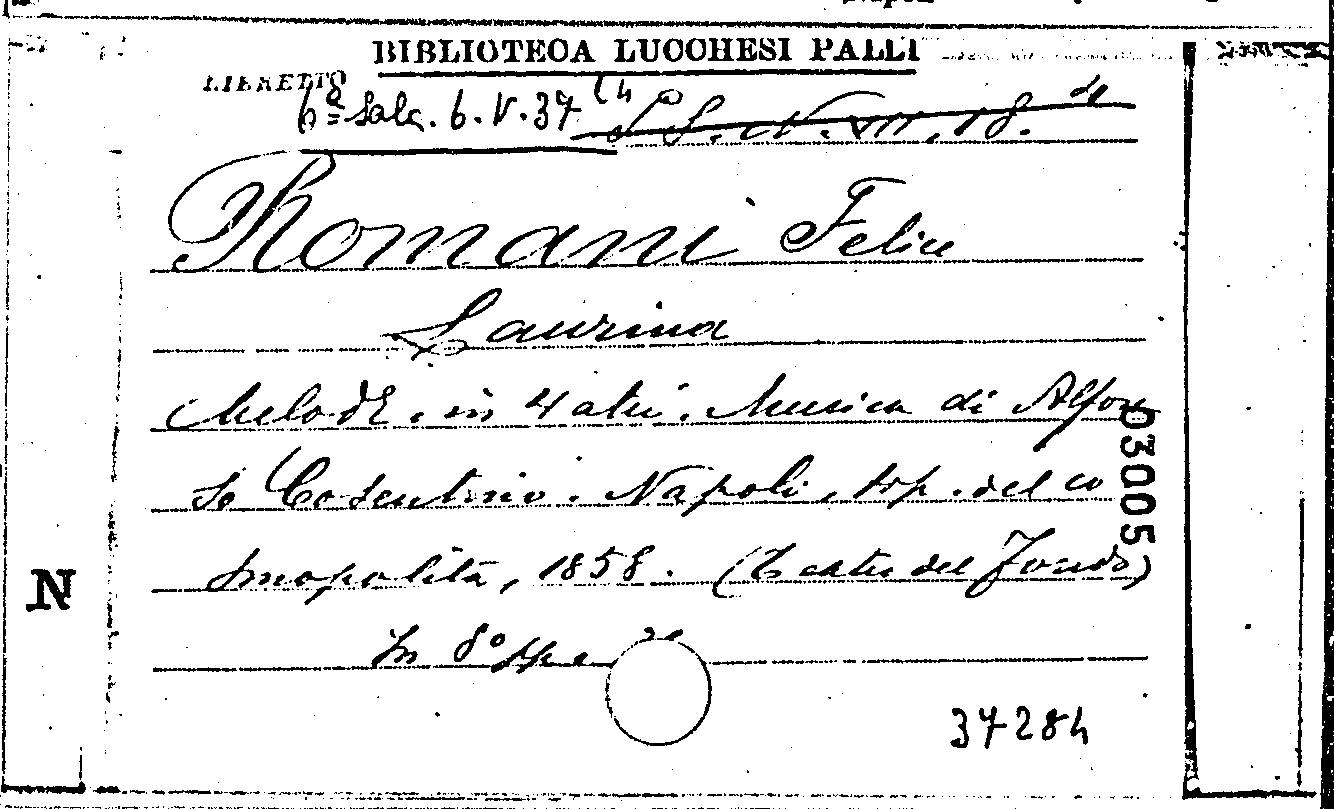 BIBLIOTECA LUCCHESI PALLI
LIBRETTO
6ª Sala. 6. V. 37 (4
S. N. VII. 18.
Romani Felice
Laurina
Melodr. in 4 atti. Musica di Alfon
so Cosentino. Napoli, tip. del co
smopolita, 1858. (Teatro del Fondo)
In 8° pp.
03005
N
37284